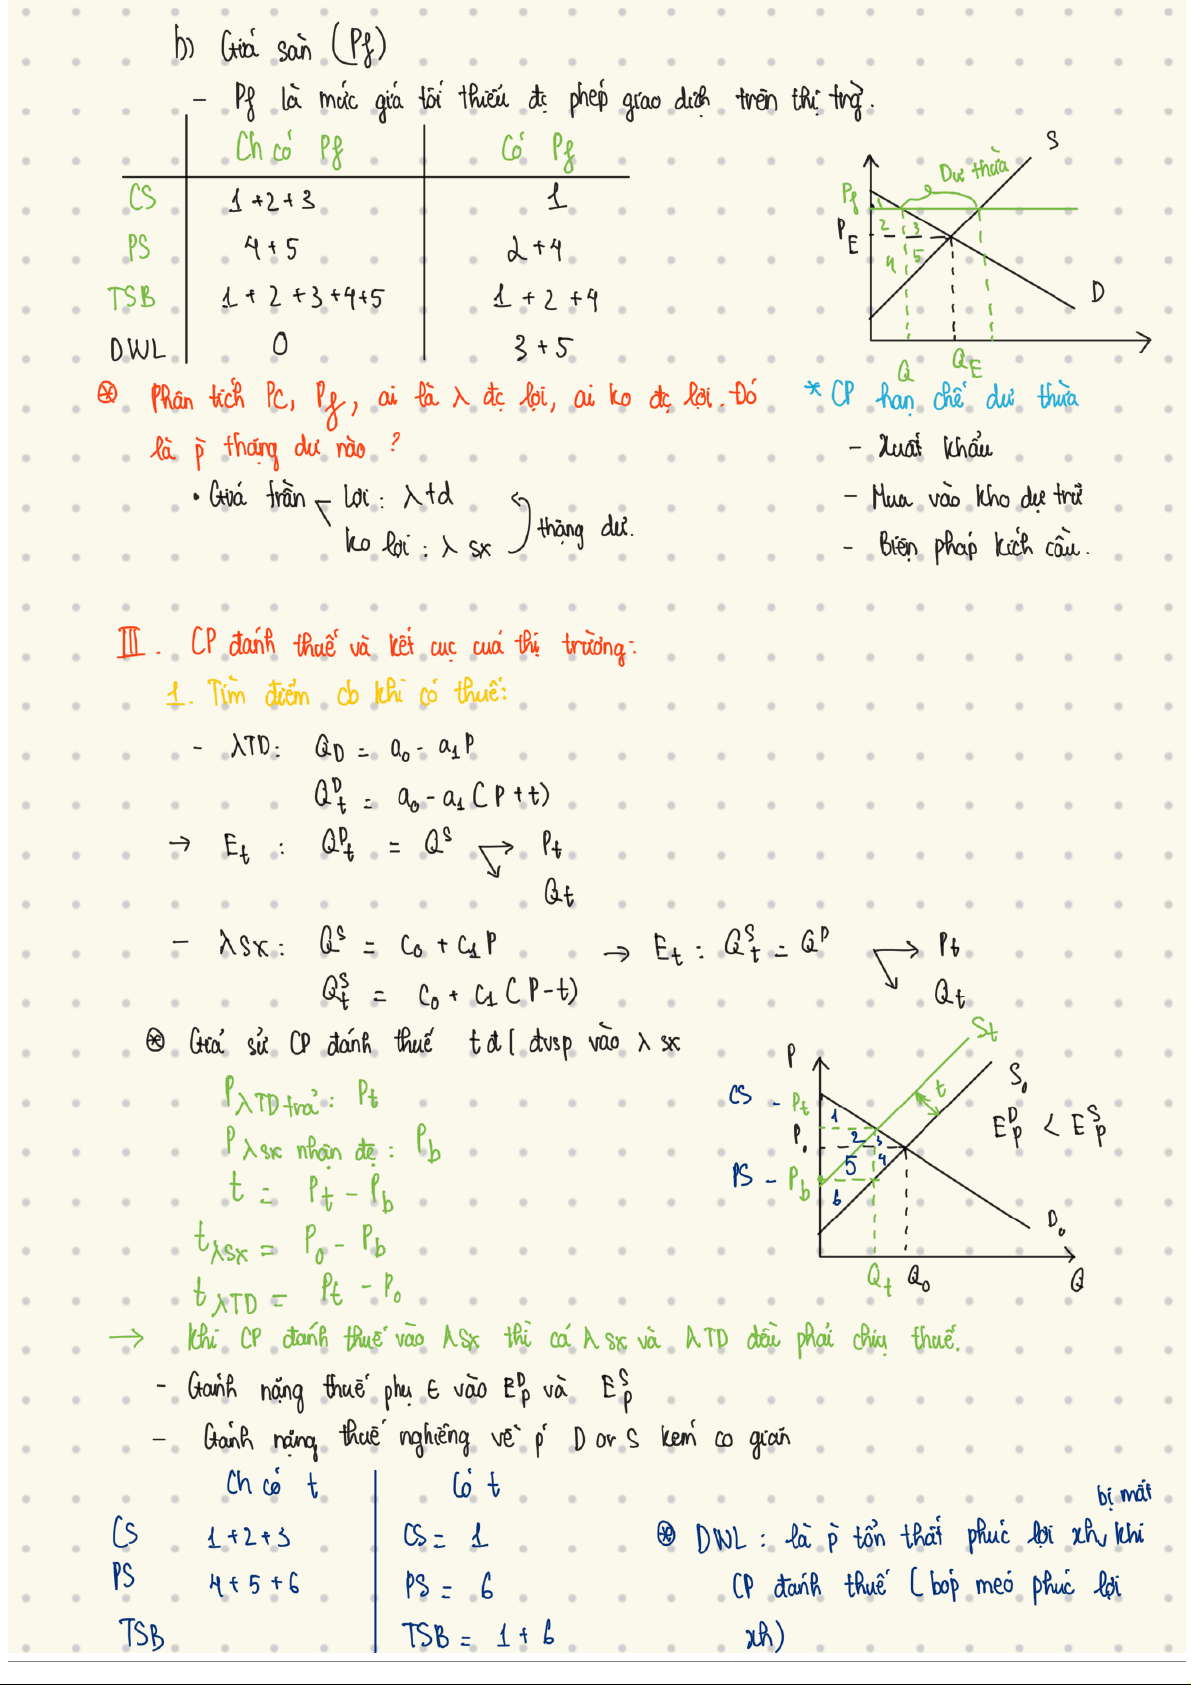 b) Giá sàn (Pf)
- Pf là mức giá tối thiểu đc phép giao dịch trên thị trg.
Ch có Pf Có Pf
CS 1+2+3 1
PS 4+5 2+4
TSB 1+2+3+4+5 1+2+4
DWL 0 3+5
S
Dư thừa
Pf
1
2 3
PE
4 5
D
Q QE
⊛ Phân tích Pc, Pf, ai là λ đc lợi, ai ko đc lợi. Đó
là p̀ thặng dư nào?
• Giá trần - lợi: λtd
ko lợi: λ sx
thặng dư.
* CP hạn chế dư thừa
- Xuất khẩu
- Mua vào kho dự trữ
- Biện pháp kích cầu.
III. CP đánh thuế và kết cục của thị trường:
1. Tìm điểm cb khi có thuế:
- λTD: QD = a₀ - a₁P
QDt = a₀ - a₁(P+t)
→ Et: QDt = QS → Pt
Qt
- λsx: QS = c₀ + c₁P → Et: QSt = QD → Pt
QSt = c₀ + c₁(P-t) Qt
⊛ Giả sử CP đánh thuế t đ/đvsp vào λ sx
PλTD trả: Pt
Pλsx nhận đc: Pb
t = Pt - Pb
tλsx = P₀ - Pb
tλTD = Pt - P₀
P St
S₀
t
CS - Pt 1
EDp < ESp
P₀ 2 3
5 4
PS - Pb
6
D₀
Qt Q₀ Q
→ Khi CP đánh thuế vào λsx thì cả λ sx và λTD đều phải chịu thuế.
- Gánh nặng thuế phụ ∈ vào EDp và ESp
- Gánh nặng thuế nghiêng về p' D or S kém co giãn
Ch có t Có t
CS 1+2+3 CS = 1
PS 4+5+6 PS = 6
TSB TSB = 1+6
bị mất
⊛ DWL: là p̀ tổn thất phúc lợi xh, khi
CP đánh thuế (bóp méo phúc lợi
xh)